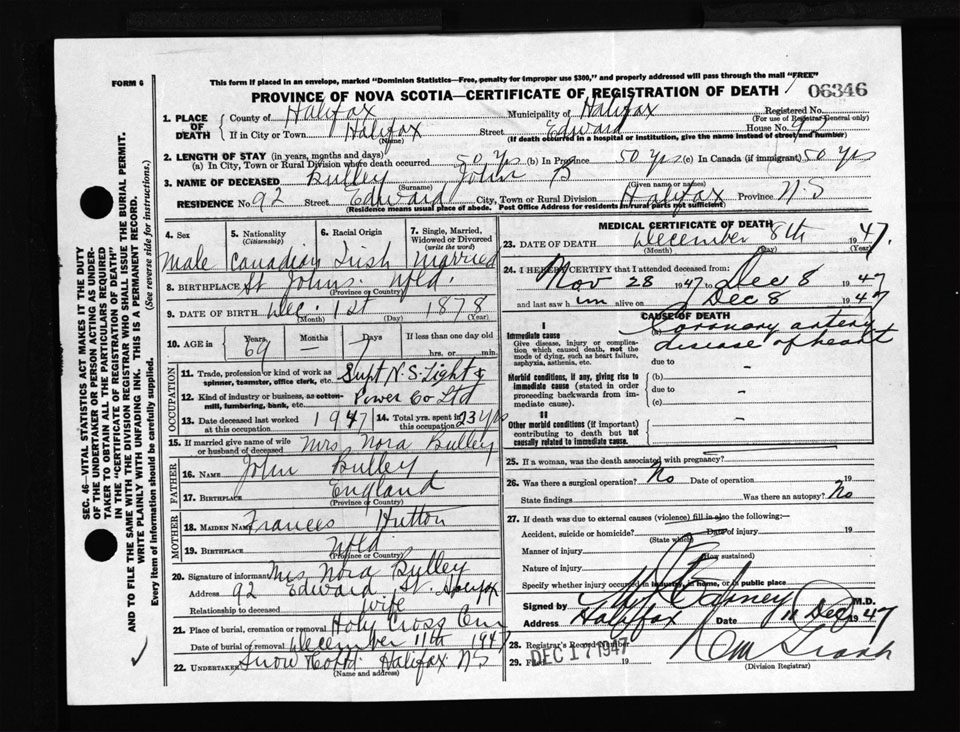 FORM 6
This form if placed in an envelope, marked "Dominion Statistics—Free, penalty for improper use $300," and properly addressed will pass through the mail "FREE"
PROVINCE OF NOVA SCOTIA—CERTIFICATE OF REGISTRATION OF DEATH
06346
1. PLACE OF DEATH
County of Halifax Municipality of Halifax Registered No.
(For use of Registrar General only)
If in City or Town Halifax Street Edward House No. 92
(Name) (If death occurred in a hospital or institution, give the name instead of street and number)
2. LENGTH OF STAY (in years, months and days)
(a) In City, Town or Rural Division where death occurred 50 Yrs (b) In Province 50 Yrs (c) In Canada (if immigrant) 50 Yrs
3. NAME OF DECEASED Bulley John B
(Surname) (Given name or names)
RESIDENCE No. 92 Street Edward City, Town or Rural Division Halifax Province N.S
(Residence means usual place of abode. Post Office Address for residents in rural parts not sufficient)
4. Sex 5. Nationality (Citizenship) 6. Racial Origin 7. Single, Married, Widowed or Divorced (write the word)
Male Canadian Irish Married
8. BIRTHPLACE St Johns Nfld.
(Province or Country)
9. DATE OF BIRTH Dec. 1st 1878
(Month) (Day) (Year)
10. AGE in Years Months Days If less than one day old
69 7 hrs. or min.
OCCUPATION
11. Trade, profession or kind of work as spinner, teamster, office clerk, etc. Supt N.S. Light &
12. Kind of industry or business, as cotton-mill, lumbering, bank, etc. Power Co Ltd
13. Date deceased last worked at this occupation 1947 14. Total yrs. spent in this occupation 23 yrs
15. If married give name of wife or husband of deceased Mrs. Nora Bulley
FATHER
16. NAME John Bulley
17. BIRTHPLACE England
(Province or Country)
MOTHER
18. MAIDEN NAME Frances Hutton
19. BIRTHPLACE Nfld
(Province or Country)
20. Signature of informant Mrs Nora Bulley
Address 92 Edward St. Halifax
Relationship to deceased wife
21. Place of burial, cremation or removal Holy Cross Cem
Date of burial or removal December 11th 1947
22. UNDERTAKER Snow Co Ltd. Halifax NS
(Name and address)
MEDICAL CERTIFICATE OF DEATH
23. DATE OF DEATH December 8th 1947.
(Month) (Day) (Year)
24. I HEREBY CERTIFY that I attended deceased from:
Nov 28 1947 to Dec 8 1947
and last saw him alive on Dec 8 1947
CAUSE OF DEATH
I
Immediate cause
Give disease, injury or complication which caused death, not the mode of dying, such as heart failure, asphyxia, asthenia, etc.
(a) Coronary artery
disease of heart
due to
Morbid conditions, if any, giving rise to immediate cause (stated in order proceeding backwards from immediate cause).
(b) -
due to -
(c)
II
Other morbid conditions (if important) contributing to death but not causally related to immediate cause.
25. If a woman, was the death associated with pregnancy?
26. Was there a surgical operation? No Date of operation 19
State findings Was there an autopsy? No
27. If death was due to external causes (violence) fill in also the following:—
Accident, suicide or homicide? Date of injury 19
(State which)
Manner of injury
(How sustained)
Nature of injury
Specify whether injury occurred in industry, in home, or in public place
Signed by M.D.
Address Halifax Date Dec 1947
28. Registrar's Record Number
29. Filed DEC 17 1947 19
(Division Registrar)
SEC. 46—VITAL STATISTICS ACT MAKES IT THE DUTY
OF THE UNDERTAKER OR PERSON ACTING AS UNDER-
TAKER TO OBTAIN ALL THE PARTICULARS REQUIRED
IN THE "CERTIFICATE OF REGISTRATION OF DEATH"
AND TO FILE THE SAME WITH THE DIVISION REGISTRAR WHO SHALL ISSUE THE BURIAL PERMIT.
WRITE PLAINLY WITH UNFADING INK. THIS IS A PERMANENT RECORD.
Every item of information should be carefully supplied. (See reverse side for instructions.)